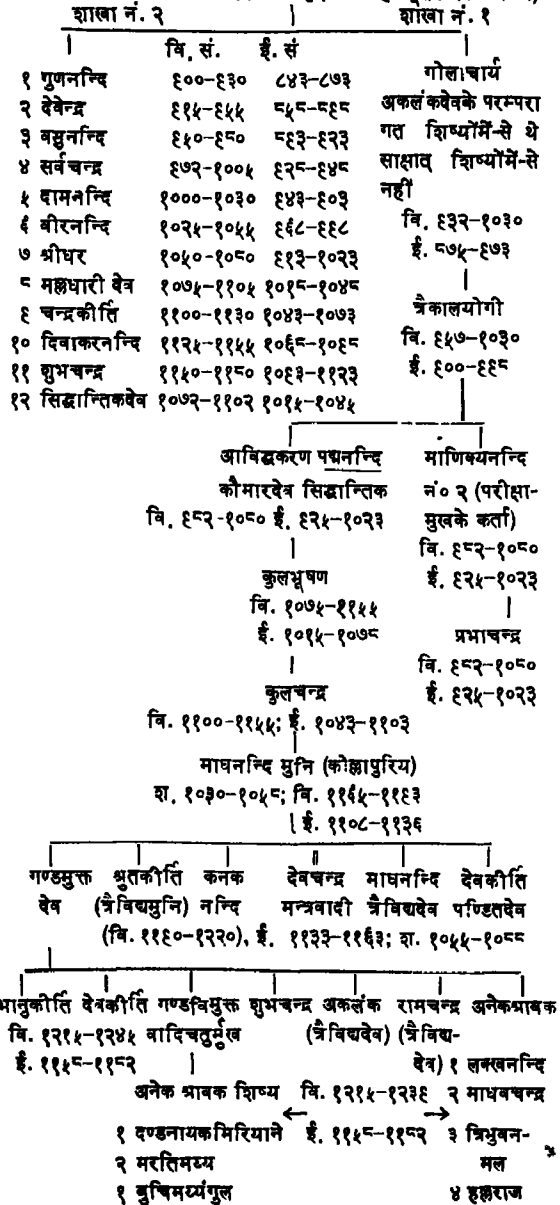 शाखा नं. २ शाखा नं. १
वि. सं. ई. सं
१ गुणनन्दि ९००-९३० ८४३-८७३
२ देवेन्द्र ९१५-९५५ ८५८-८९८
३ वसुनन्दि ९५०-९८० ८९३-९२३
४ सर्वचन्द्र ९७२-१००५ ९२८-९४८
५ दामनन्दि १०००-१०३० ९४३-९०३
६ वीरनन्दि १०२५-१०५५ ९६८-९९८
७ श्रीधर १०५०-१०८० ९१३-१०२३
८ मल्लधारी देव १०७५-११०५ १०१८-१०४८
९ चन्द्रकीर्ति ११००-११३० १०४३-१०७३
१० दिवाकरनन्दि ११२५-११५५ १०६८-१०९८
११ शुभचन्द्र ११५०-११८० १०९३-११२३
१२ सिद्धान्तिकदेव १०७२-११०२ १०१५-१०४५
गोलाचार्य
अकलंकदेवके परम्परा
गत शिष्योंमें-से थे
साक्षात् शिष्योंमें-से
नहीं
वि. ९३२-१०३०
ई. ८७५-९७३
त्रैकालयोगी
वि. ९५७-१०३०
ई. ९००-९९८
आविद्धकरण पद्मनन्दि माणिक्यनन्दि
कौमारदेव सिद्धान्तिक नं० २ (परीक्षा-
वि. ९८२-१०८० ई. ९२५-१०२३ मुखके कर्ता)
वि. ९८२-१०८०
कुलभूषण ई. ९२५-१०२३
वि. १०७५-११५५
ई. १०१५-१०७८ प्रभाचन्द्र
वि. ९८२-१०८०
कुलचन्द्र ई. ९२५-१०२३
वि. ११००-११५५; ई. १०४३-११०३
माघनन्दि मुनि (कोल्लापुरिय)
श. १०३०-१०५८; वि. ११६५-११९३
ई. ११०८-११३६
गण्डमुक्त श्रुतकीर्ति कनक देवचन्द्र माघनन्दि देवकीर्ति
देव (त्रैविद्यमुनि) नन्दि मन्त्रवादी त्रैविद्यदेव पण्डितदेव
(वि. ११९०-१२२०), ई. ११३३-११६३; श. १०५५-१०८८
भानुकीर्ति देवकीर्ति गण्डविमुक्त शुभचन्द्र अकलंक रामचन्द्र अनेकश्रावक
वि. १२१५-१२४५ वादिचतुर्मुख (त्रैविद्यदेव) (त्रैविद्य-
ई. ११५८-११८२ देव) १ लक्खनन्दि
अनेक श्रावक शिष्य वि. १२१५-१२३९ २ माधवचन्द्र
१ दण्डनायकमिरियाने ई. ११५८-११८२ ३ त्रिभुवन-
२ मरतिमय्य मल
१ बुचिमय्यंगुल ४ हल्लराज